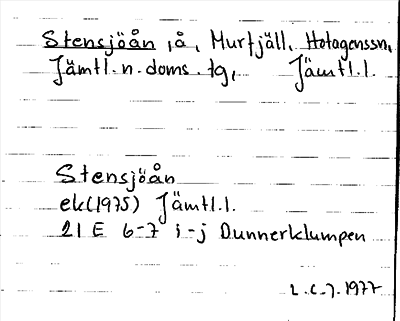 Stensjöån, å, Murfjäll, Hotagenssn,
Jämtl. n. doms. tg, Jämtl. l.
Stensjöån
ek(1975) Jämtl. l.
21 E 6-7 i-j Dunnerklumpen
L. C. J. 1977